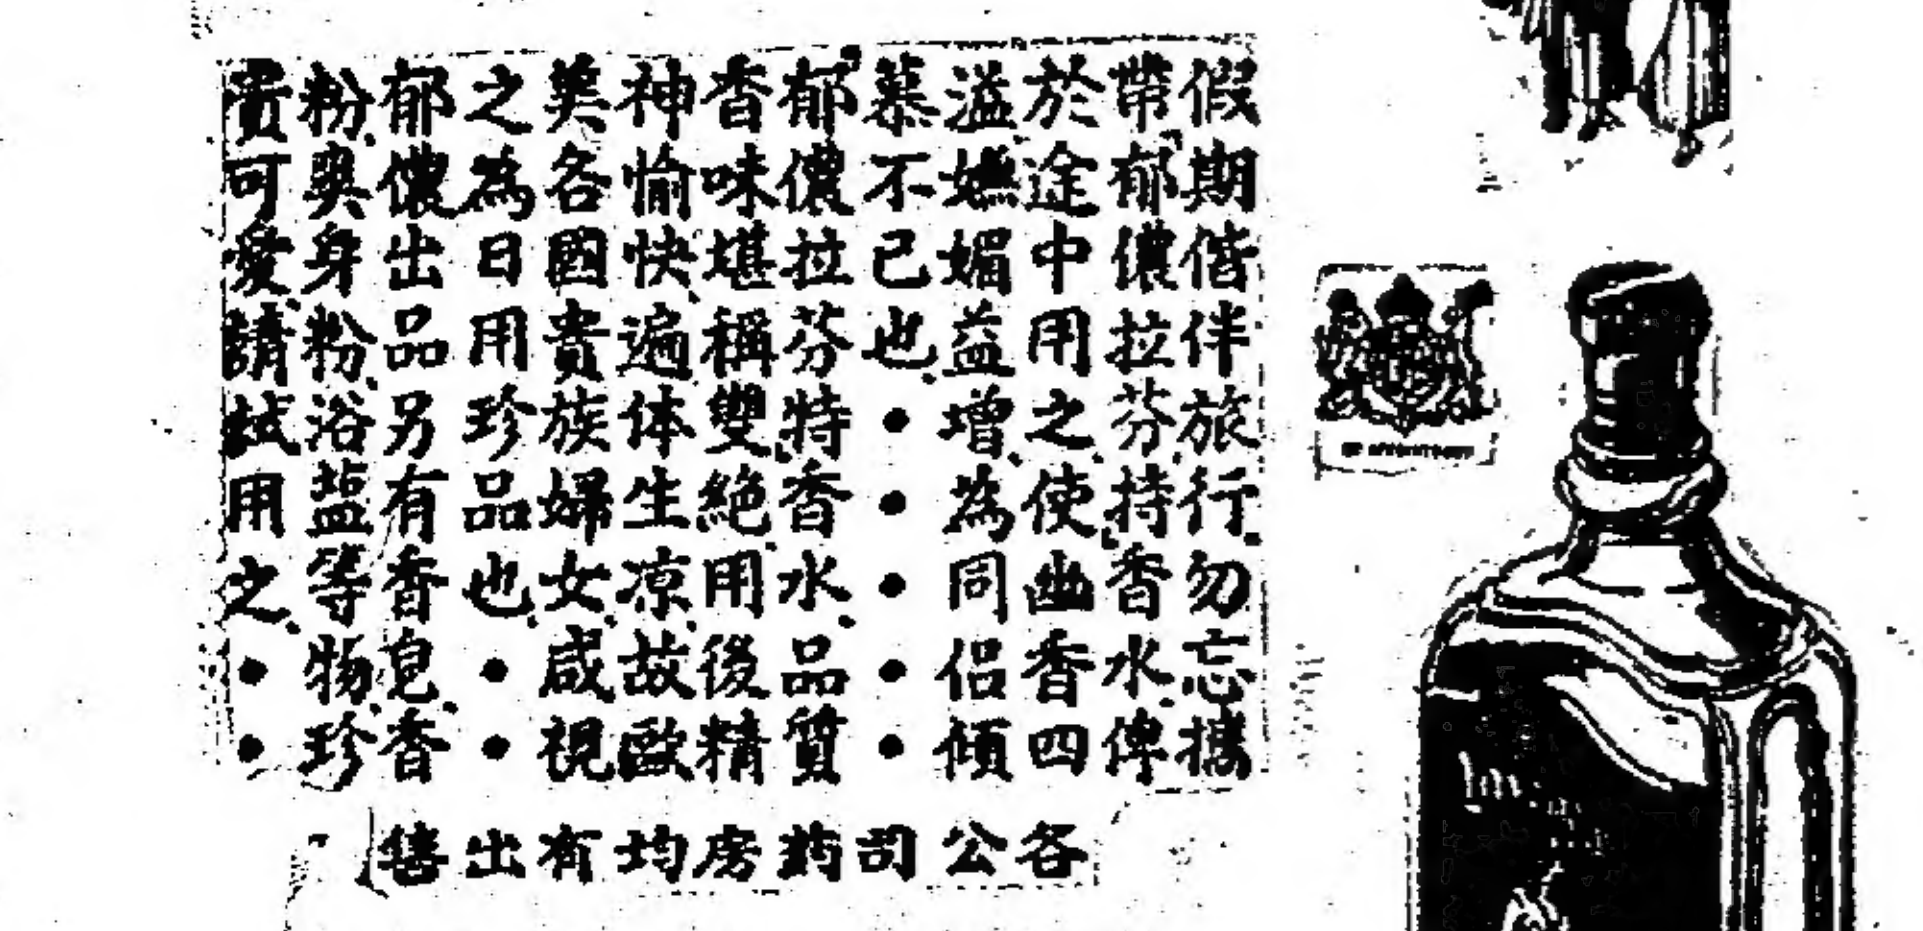 假期偕伴旅行勿忘攜
帶「郁儂拉芬」持香水俾
於途中用之使幽香四
溢嫵媚益增為同侶傾
慕不已也••••
「郁儂拉芬」特香水品質
香味堪稱雙絕用後精
神愉快遍体生凉故歐
美各國貴族婦女咸視
之為日用珍品也••
郁儂出品另有香皂香
粉爽身粉浴盐等物珍
貴可愛請試用之••
各公司葯房均有出售